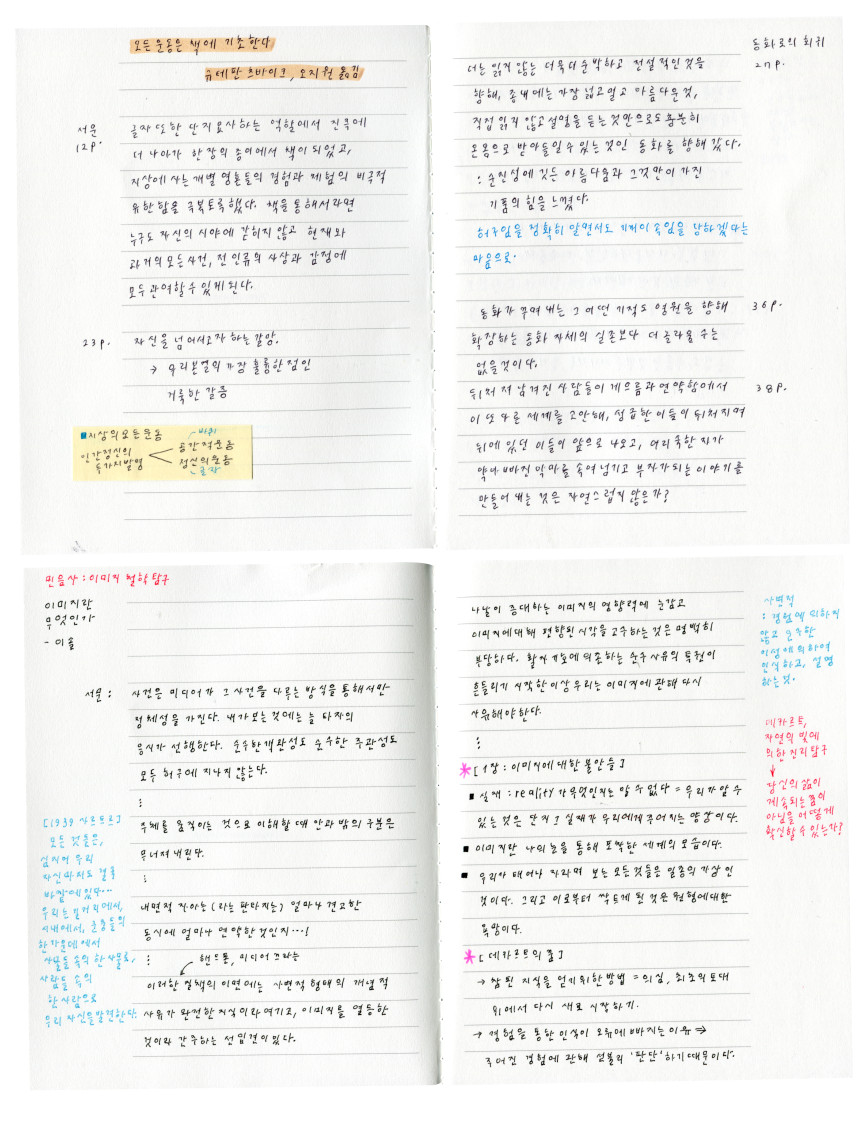 모든 운동은 책에 기초한다
슈테판 츠바이크, 오지원 옮김
서문
12p.
글자 또한 단지 묘사하는 역할에서 진력에
더 나아가 한 장의 종이에서 책이 되었고,
지상에 사는 개별 영혼들의 경험과 체험의 비극적
유한함을 극복토록 했다. 책을 통해서라면
누구도 자신의 시야에 갇히지 않고 현재와
과거의 모든 사건, 전 인류의 사상과 감정에
모두 관여할 수 있게 된다.
23p.
자신을 넘어서고자 하는 갈망.
→ 우리 본연의 가장 훌륭한 점인
거룩한 갈등
■ 지상의 모든 운동
인간정신의
두가지 발명
바퀴
공간적 운동
정신의 운동
글자
동화로의 회귀
27p.
나는 읽지 않는 더욱 더 순박하고 전설적인 것을
향해, 종내에는 가장 넓고 멀고 아름다운 것,
직접 읽지 않고 설명을 듣는 것만으로도 충분히
온몸으로 받아들일 수 있는 것인 동화를 향해 갔다.
: 순진성에 깃든 아름다움과 그것만이 가진
기쁨의 힘을 느꼈다.
허구임을 정확히 알면서도 기꺼이 속임을 당하겠다는
마음으로.
36p.
동화가 꾸며내는 그 어떤 기적도 영원을 향해
확장하는 동화 자체의 실존보다 더 놀라울 수는
없을 것이다.
38p.
뒤처져 남겨진 사람들이 게으름과 연약함에서
이 또 다른 세계를 고안해, 성급한 이들이 뒤처지며
뒤에 있던 이들이 앞으로 나오고, 어리숙한 자가
약아빠진 악마를 속여 넘기고 부자가 되는 이야기를
만들어 내는 것은 자연스럽지 않은가?
민음사 : 이미지 철학 탐구
이미지란
무엇인가
- 이솔
서문 :
사건은 미디어가 그 사건을 다루는 방식을 통해서만
정체성을 가진다. 내가 보는 것에는 늘 타자의
응시가 선행한다. 순수한 객관성도 순수한 주관성도
모두 허구에 지나지 않는다.
⋮
주체를 움직이는 것으로 이해할 때 안과 밖의 구분은
무너져 내린다.
⋮
내면적 자아는 (라는 판타지는) 얼마나 견고한
동시에 얼마나 연약한 것인지…!
⋮
핸드폰, 미디어 쓰라는
이러한 질책의 이면에는 사변적 형태의 개념적
사유가 완전한 지식이라 여기고, 이미지를 열등한
것이라 간주하는 선입견이 있다.
[1939 사르트르]
모든 것들은,
심지어 우리
자신마저도 결국
바깥에 있다…
우리는 길거리에서,
시내에서, 군중들의
한가운데에서
사물들 속의 한 사물로,
사람들 속의
한 사람으로
우리 자신을 발견한다.
나날이 증대하는 이미지의 영향력에 눈감고
이미지에 대해 편향된 시각을 고수하는 것은 명백히
부당하다. 활자 기호에 의존하는 순수 사유의 특권이
흔들리기 시작한 이상 우리는 이미지에 관해 다시
사유해야 한다.
⋮
* [1장 : 이미지에 대한 불안들]
■ 실재 : reality가 무엇인지는 알 수 없다 = 우리가 알 수
있는 것은 단지 그 실재가 우리에게 주어지는 양상이다.
■ 이미지란 나의 눈을 통해 포착한 세계의 모습이다.
■ 우리가 태어나 자라며 보는 모든 것들은 일종의 가상인
것이다. 그리고 이로부터 싹트게 된 것은 원형에 대한
욕망이다.
* [데카르트의 꿈]
→ 참된 지식을 얻기 위한 방법 = 의심, 최초의 토대
위에서 다시 새로 시작하기.
→ 경험을 통한 인식이 오류에 빠지는 이유 ⇒
주어진 경험에 관해 섣불리 '판단'하기 때문이다.
사변적
: 경험에 의하지
않고 순수한
이성에 의하여
인식하고, 설명
하는 것.
데카르트,
자연의 빛에
의한 진리탐구
↓
당신의 삶이
계속되는 꿈이
아님을 어떻게
확신할 수 있는가?